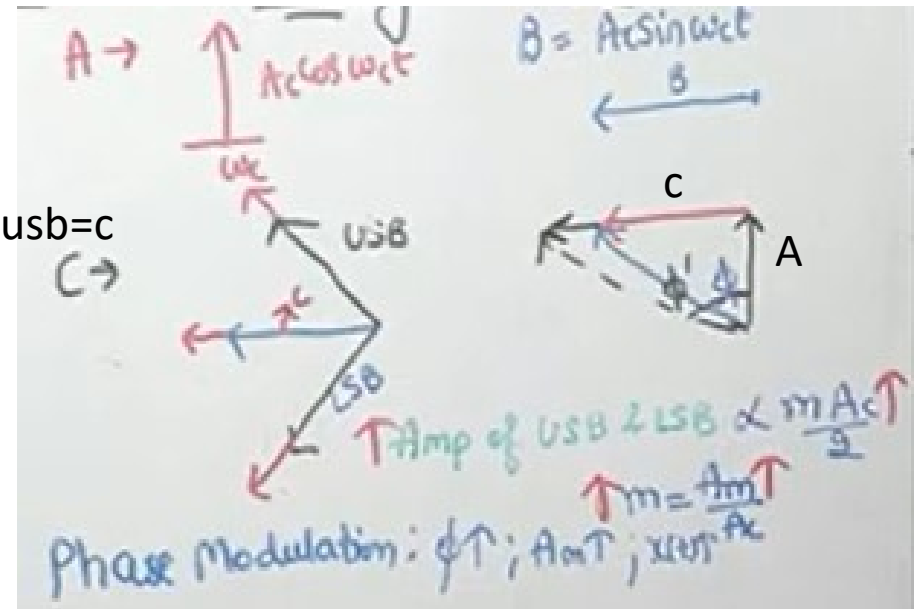 A →
Ac Cos wct
B = Ac Sin wct
B
wc
usb=c
C →
USB
c
LSB
c
A
ϕ'
ϕ
↑ Amp of USB & LSB ∝ mAc/2 ↑
↑ m = Am/Ac ↑
Phase Modulation: ϕ↑ ; Am↑ ; x(t)↑